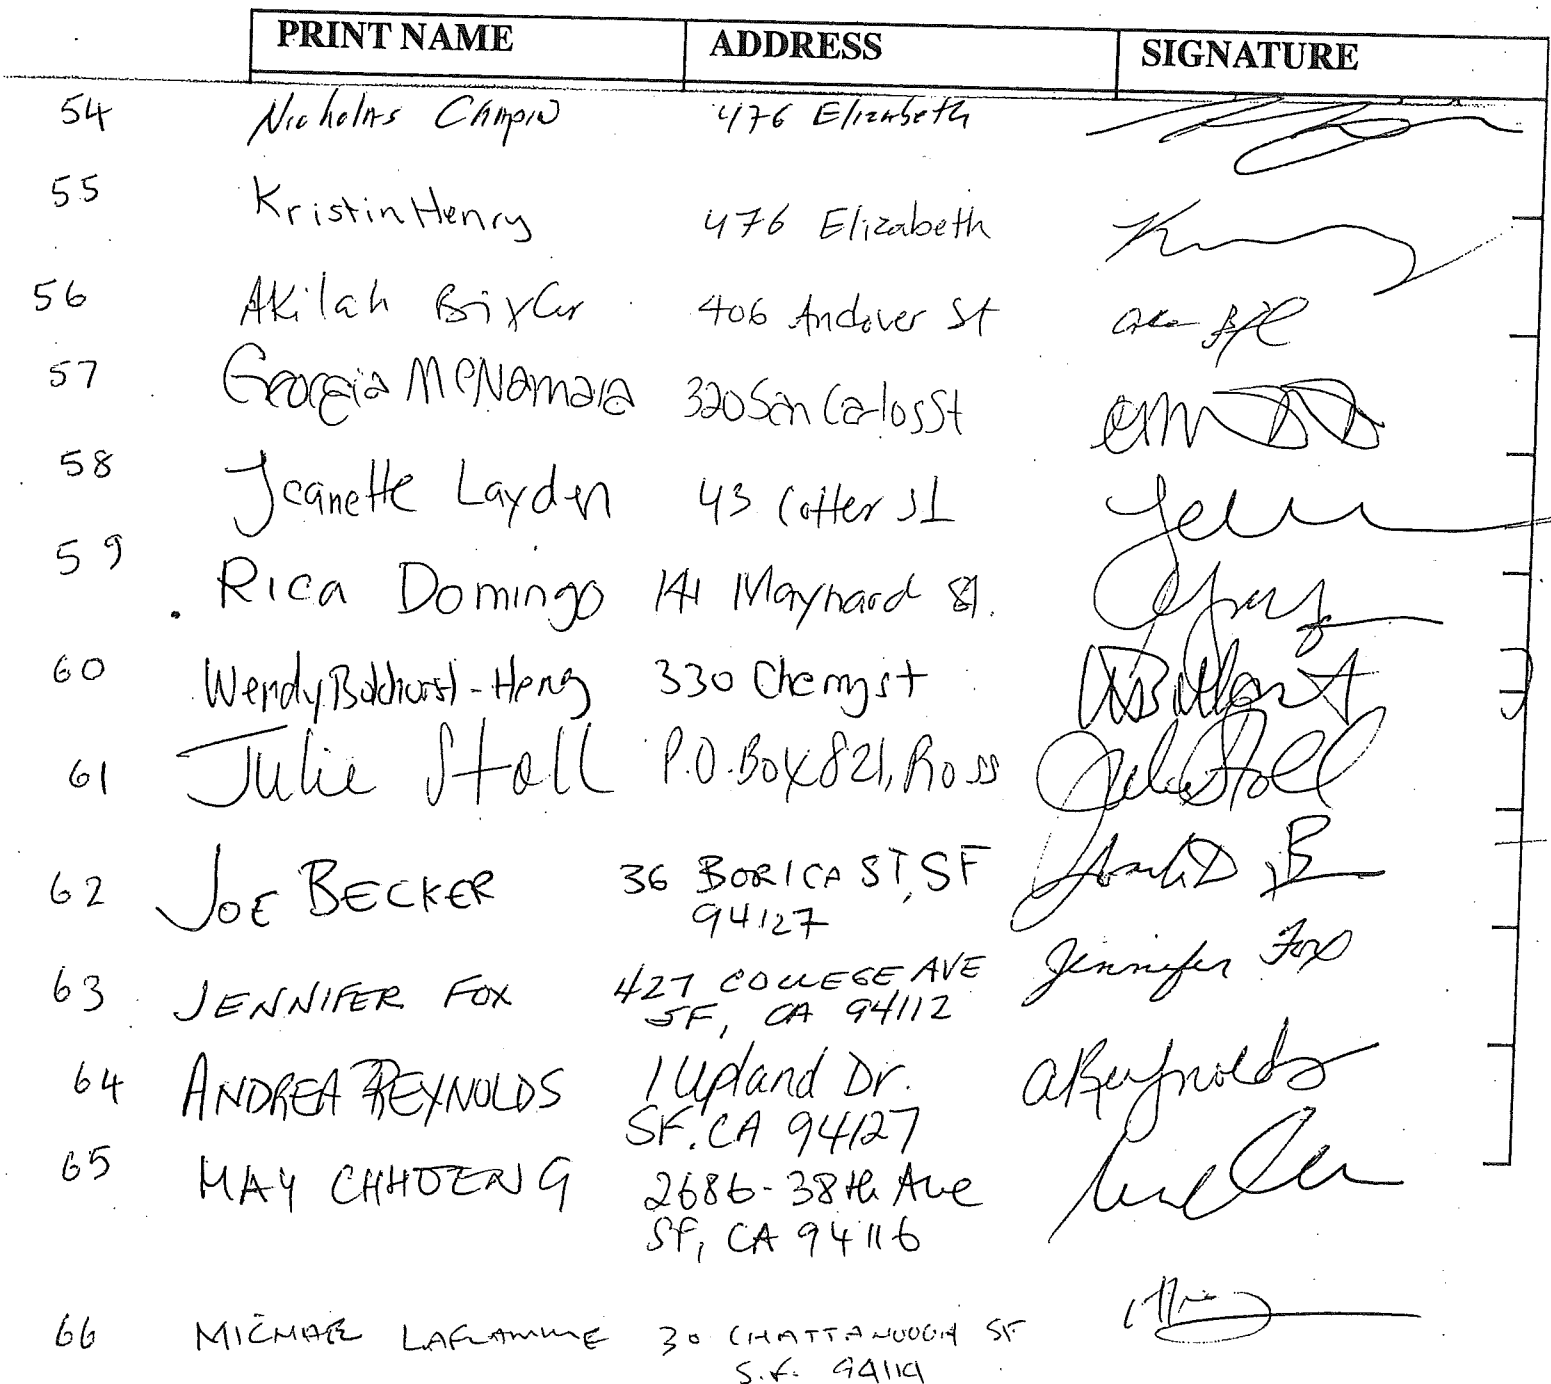 PRINT NAME ADDRESS SIGNATURE
54 Nicholas Chapin 476 Elizabeth
55 Kristin Henry 476 Elizabeth
56 Akilah Bixler 406 Andover St
57 Georgia McNamara 320 San Carlos St
58 Jeanette Layden 43 Cotter St
59 Rica Domingo 141 Maynard St.
60 Wendy Bokhorst-Heng 330 Chenery st
61 Julie Stoll P.O. Box 821, Ross Julie Stoll
62 JOE BECKER 36 BORICA ST, SF
94127
63 JENNIFER FOX 427 COLLEGE AVE Jennifer Fox
SF, CA 94112
64 ANDREA REYNOLDS 1 Upland Dr. AReynolds
SF. CA 94127
65 MAY CHHOENG 2686-38th Ave
SF, CA 94116
66 MICHAEL LAFLAMME 30 CHATTANOOGA ST
S.F. 94114